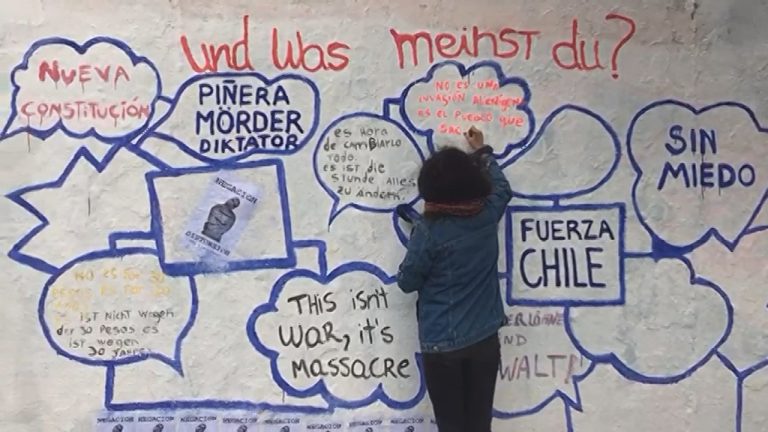 und was meinst du?
NUEVA
CONSTITUCIÓN
PIÑERA
MÖRDER
DIKTATOR
es HORA
de cambiarlo
todo.
es ist die
stunde alles
zu ändern.
NO ES UNA
ES EL PUEBLO QUE
SIN
MIEDO
NEGACION
FUERZA
CHILE
NO ES POR 30
PESOS ES POR 30
IST NICHT wegen
der 30 Pesos es
ist wegen
30 JAHRE
THIS ISN'T
WAR, IT'S
MASSACRE
NEGACION NEGACION NEGACION NEGACION NEGACION